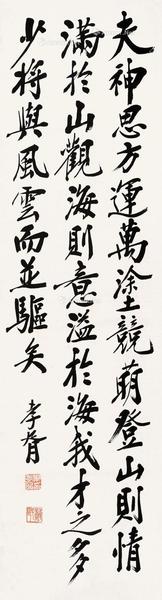 夫神思方運萬塗競萠登山則情
滿於山觀海則意溢於海我才之多
少將與風雲而並驅矣
孝胥